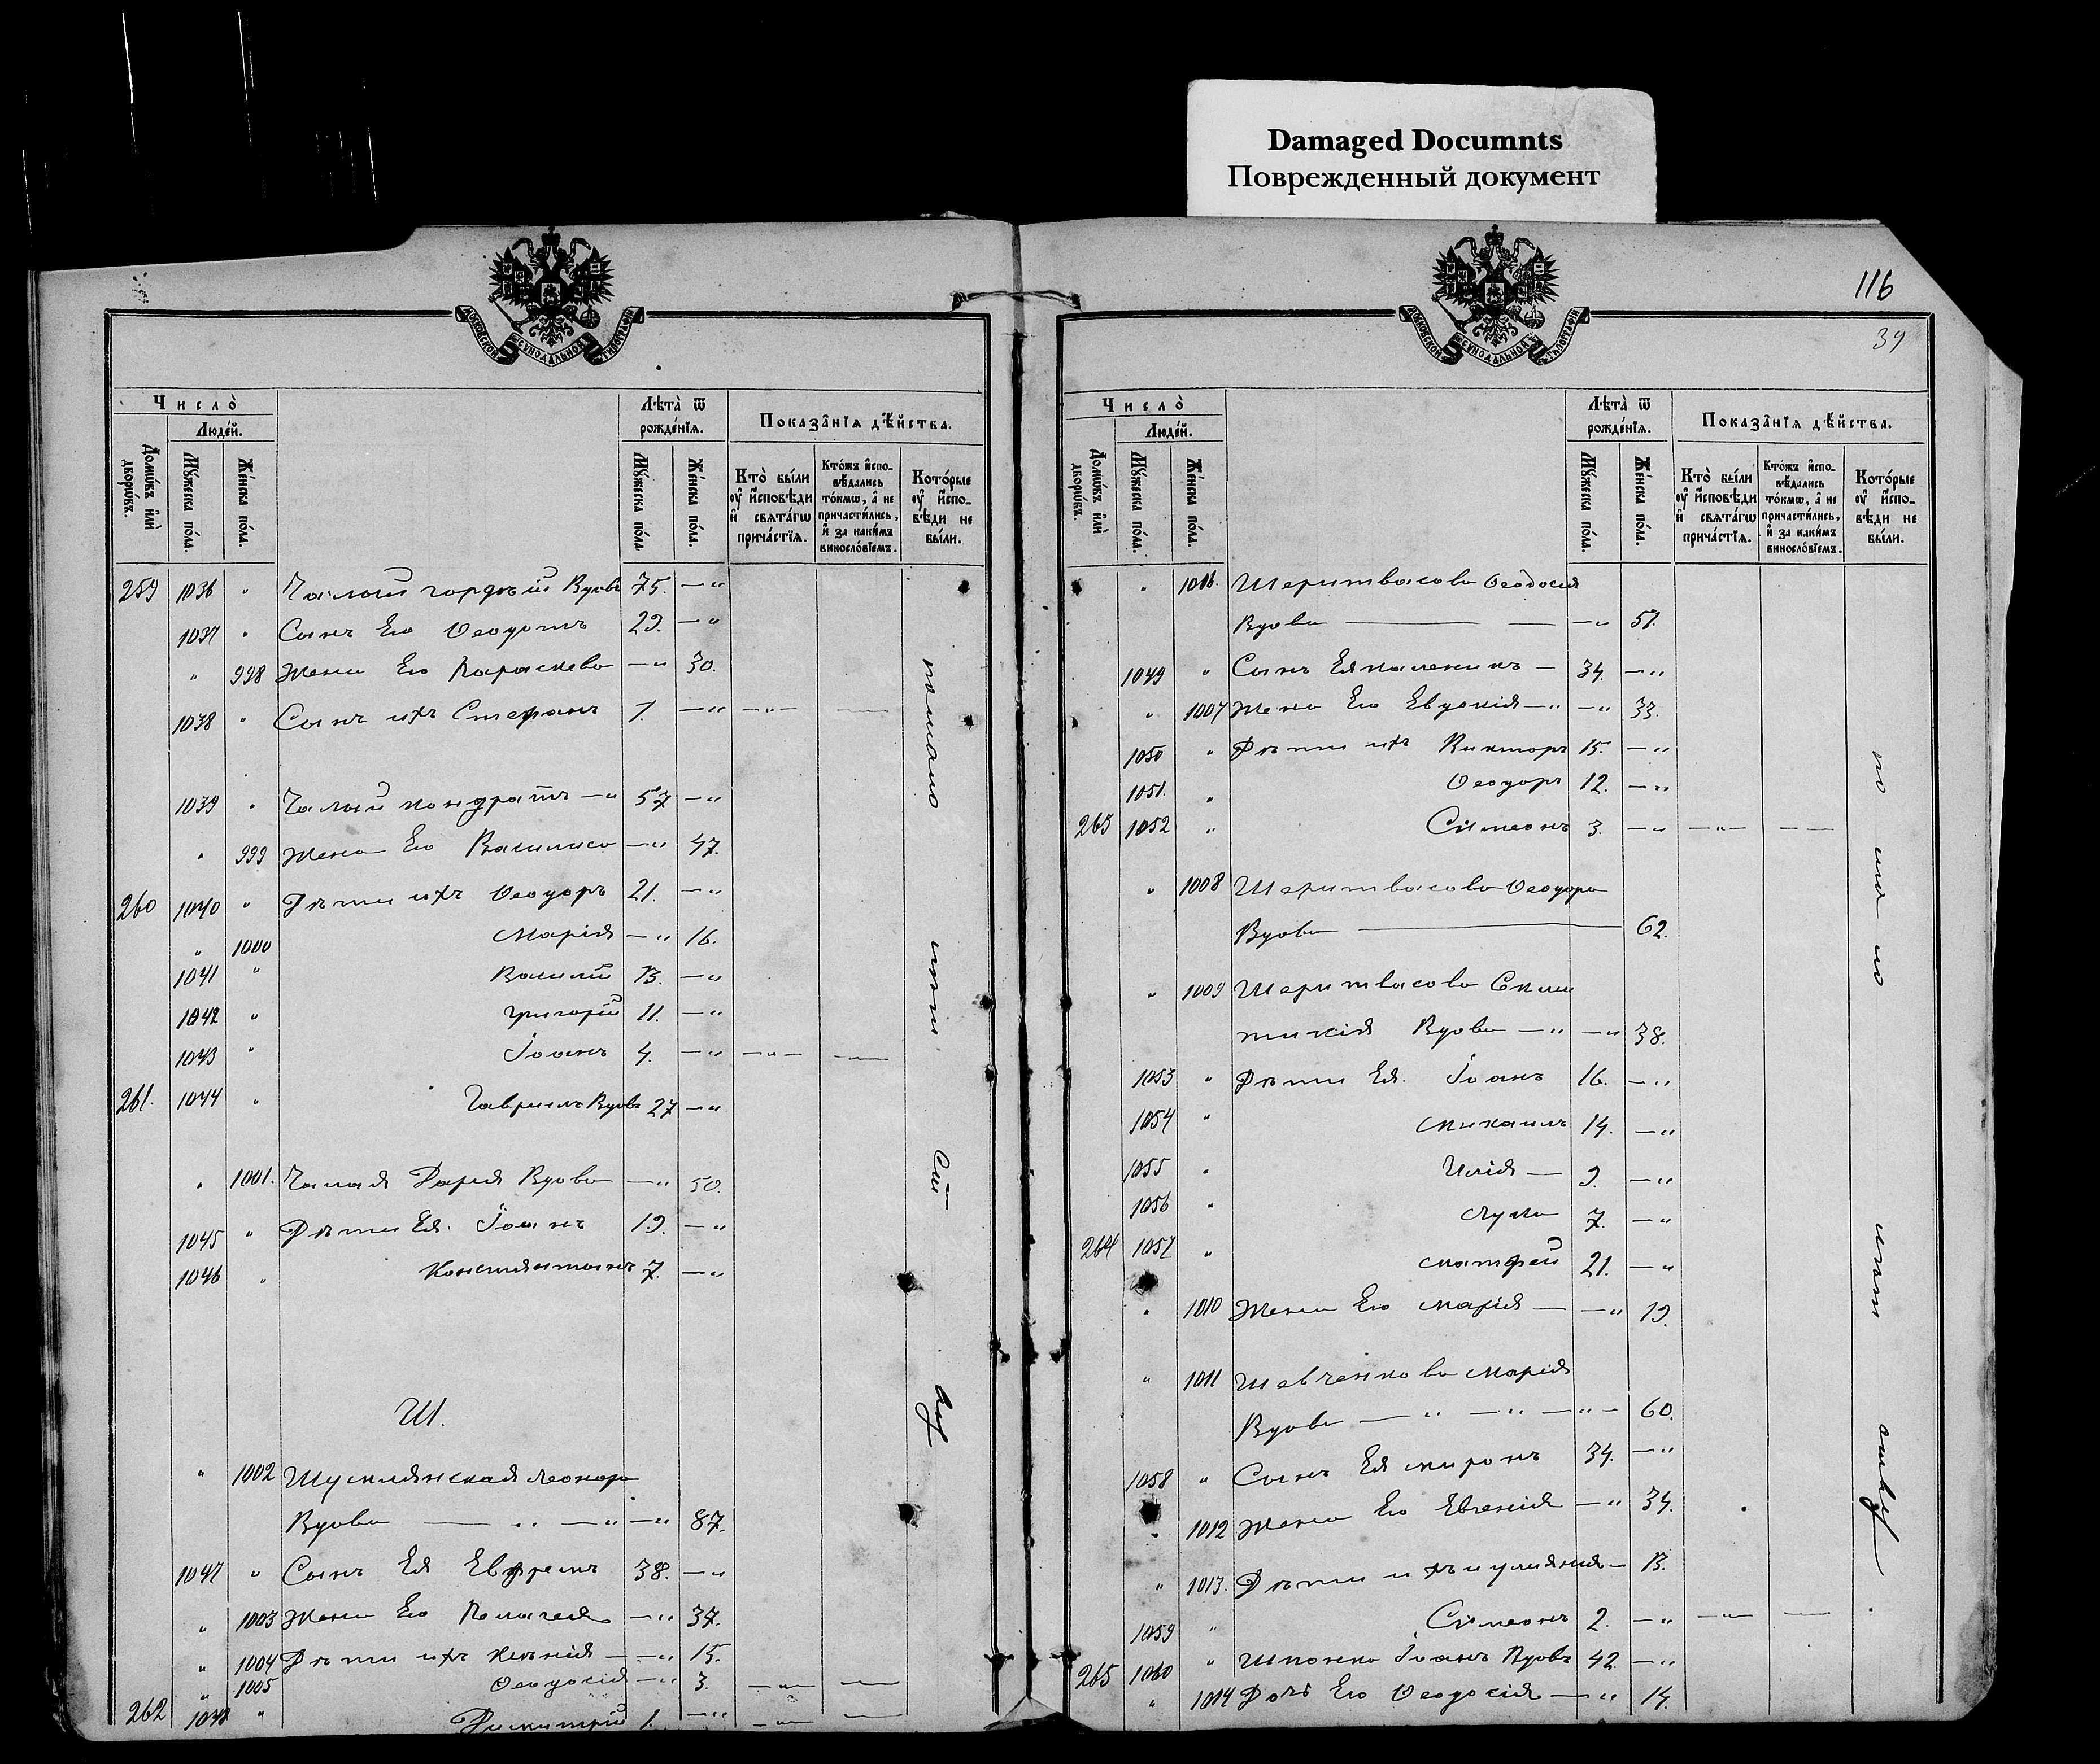 Damaged Documnts
Поврежденный документ
116
39
МОСКОВСКОЙ СѴНОДАЛЬНОЙ ТѴПОГРАФІИ
Число̀
Люде́й.
Домѡ́въ и҆лѝ дворѡ́въ.
Мꙋ́жеска по́ла.
Же́нска по́ла.
Лѣ́та ѿ рожде́нїѧ.
Мꙋ́жеска по́ла
Же́нска по́ла.
Показа̑нїѧ дѣ́йства.
Кто̀ бы́ли ᲂу҆ и҆́сповѣди и҆ свѧта́гѡ прича́стїѧ.
Кто́жъ и҆спо-вѣ́дались то́кмѡ, а҆ не причасти́лись, и҆ за каки́мъ виносло́вїемъ.
Кото́рые ᲂу҆ и҆спо-вѣди не бы́ли.
259 1036 " Чалый Гордѣй Вдовъ 75. — "
1037 " Сынъ Его Ѳеодотъ 29. — "
" 998 Жена Его Параскева — " 30.
1038 " Сынъ ихъ Стефанъ 1. — " — " — —
1039 " Чалый Кондратъ — " 57 — "
" 999 Жена Его Василиса — " 47.
260 1040 " Дѣти ихъ Ѳеодоръ 21. — "
" 1000 Марія — " 16.
1041 " Василій 13. — "
1042 " Григорій 11. — "
1043 " Іоанъ 4. — " — " — —
261. 1044 " Гавріилъ Вдовъ 27 — "
" 1001. Чалая Дарія Вдова — " 50.
1045 " Дѣти Ея. Іоанъ 19. — "
1046 " Констянтинъ 7. — "
Ш.
" 1002
Вдова — " — " — " 87.
1047 " Сынъ Ея Евфремъ 38. — "
" 1003 Жена Его Пелагея — " 37.
" 1004 Дѣти ихъ Ксенія — — " 15.
" 1005 Ѳеодосія — " 3. — " — —
262 1048 " Димитрій 1. — " — " — —
Число̀
Люде́й.
Домѡ́въ и҆лѝ дворѡ́въ.
Мꙋ́жеска по́ла.
Же́нска по́ла.
Лѣ́та ѿ рожде́нїѧ.
Мꙋ́жеска по́ла.
Же́нска по́ла.
Показа̑нїѧ дѣ́йства.
Кто̀ бы́ли ᲂу҆ и҆́сповѣди и҆ свѧта́гѡ прича́стїѧ.
Кто́жъ и҆спо-вѣ́дались то́кмѡ, а҆ не причасти́лись, и҆ за каки́мъ виносло́вїемъ.
Кото́рые ᲂу҆ и҆спо-вѣди не бы́ли.
" 1006. Шеритвасова Ѳеодосия
Вдова — — — " 57.
1049 " Сынъ Ея Каленикъ — 34. — "
" 1007 Жена Его Евдокія — " — " 33.
1050 " Дѣти ихъ Викторъ 15. — "
1051. " Ѳеодоръ 12. — "
263 1052 " Симеонъ 3. — " — " — —
" 1008 Шеритвасова Ѳеодора
Вдова — 62.
" 1009 Шеритвасова
Вдова — " — " 38.
1053 " Дѣти Ея. Іоанъ 16. — "
1054 " Михаилъ 14. — "
1055 " Илія — 9. — "
1056 " Лука 7. — "
264 1057 " Матфей 21. — "
" 1010 Жена Его Марія — — " 19.
" 1011 Шевченкова Марія
Вдова — " — " — " — 60.
1058 " Сынъ Ея Миронъ 34. — "
" 1012 Жена Его Евгенія — " 34.
" 1013. Дѣти ихъ Иулиянія — 13.
1059 " Симеонъ 2. — " — " — —
265 1060 " Шпонка Іоанъ Вдовъ 42. — "
" 1014 Дочь Его Ѳеодосія — " 14.